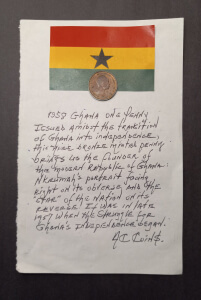 1958 Ghana one Penny
Issued amidst the transition
of Ghana into independence,
this nice bronze minted penny
brings us the founder of
the "modern Republic of Ghana."
Nkrumah's portrait facing
right on its obverse, and the
"star" of the nation on its
reverse! It was in late
1957 when the struggle for
Ghana's independence began.
COINS